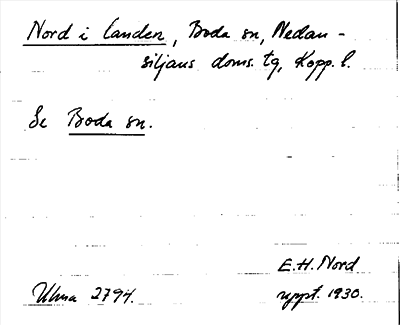 Nord i Landen, Boda sn, Nedan-
siljans doms. tg, Kopp. l.
Se Boda sn.
E.H. Nord
Ulma 2794. uppt. 1930.